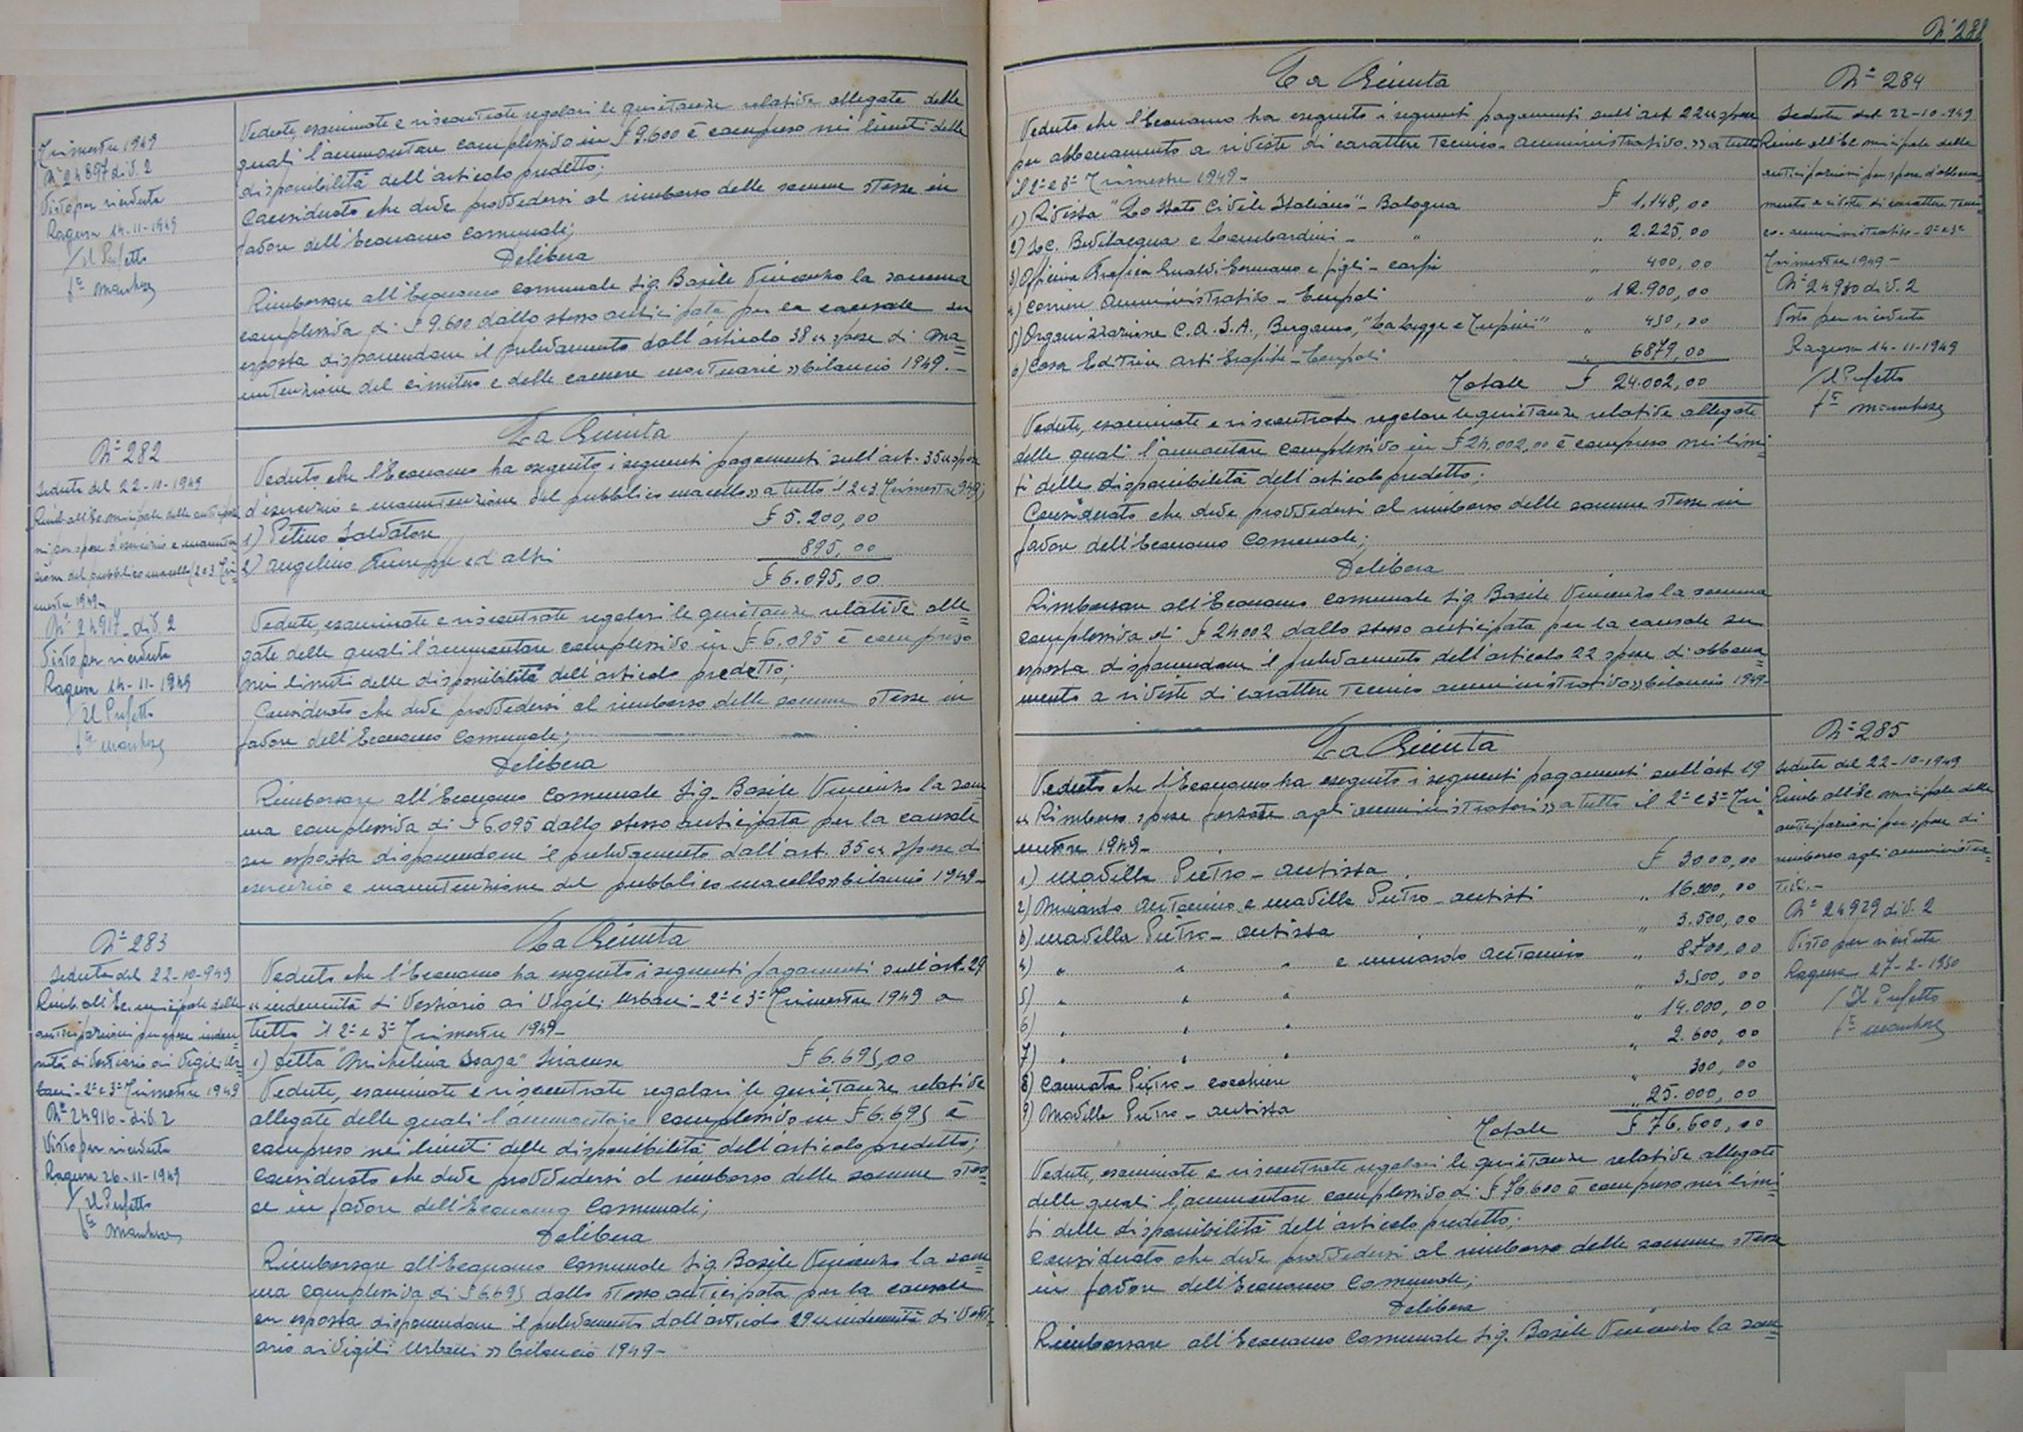 Trimestre 1949
N° 24897 div. 2
Visto per ricevuta
Ragusa 14-11-1949
Il Prefetto
Vedute, esaminate e riscontrate regolari le quietanze relative allegate delle
quali l'ammontare complessivo in £ 9.600 è compreso nei limiti delle
disponibilità dell'articolo predetto;
Considerato che deve provvedersi al rimborso delle somme stesse in
favore dell'Economo Comunale;
Delibera
Rimborsare all'Economo Comunale Sig. Basile Vincenzo la somma
complessiva di £ 9.600 dallo stesso anticipata per la causale su
esposta disponendone il prelevamento dall'articolo 38 «spese di ma=
nutenzione del cimitero e delle camere mortuarie» bilancio 1949.-
N° 282
Seduta del 22-10-1949
Rimb. all'Ec. municipale delle anticipazio
ni per spese d'esercizio e manuten
zione del pubblico macello (2 e 3 Tri=
mestre 1949-
N° 24917- div. 2
Visto per ricevuta
Ragusa 14-11-1949
Il Prefetto
La Giunta
Veduto che l'Economo ha eseguito i seguenti pagamenti sull'art. 35 «spese
d'esercizio e manutenzione del pubblico macello» a tutto il 2 e 3 Trimestre 949;
1) Pitino Salvatore £ 5.200,00
2) Angelino Giuseppe ed altri 895,00
£ 6.095,00
Vedute, esaminate e riscontrate regolari le quietanze relative alle=
gate delle quali l'ammontare complessivo in £ 6.095 è compreso
nei limiti delle disponibilità dell'articolo predetto;
Considerato che deve provvedersi al rimborso delle somme stesse in
favore dell'Economo Comunale;
Delibera
Rimborsare all'Economo Comunale Sig. Basile Vincenzo la som=
ma complessiva di £ 6.095 dallo stesso anticipata per la causale
su esposta disponendone il prelevamento dall'art. 35 «spese di
esercizio e manutenzione del pubblico macello» bilancio 1949-
N° 283
Seduta del 22-10-949
Rimb. all'Ec. municipale delle
anticipazioni per spese inden=
nità di vestiario ai Vigili Ur=
bani- 2° e 3° Trimestre 1949
N° 24916- div. 2
Visto per ricevuta
Ragusa 26-11-1949
Il Prefetto
La Giunta
Veduto che l'Economo ha eseguito i seguenti pagamenti sull'art. 29
«indennità di vestiario ai Vigili Urbani- 2° e 3° Trimestre 1949 a
tutto il 2° e 3° Trimestre 1949-
1) Ditta "Michelina Siracusa £ 6.695,00
Vedute, esaminate e riscontrate regolari le quietanze relative
allegate delle quali l'ammontare complessivo in £ 6.695 è
compreso nei limiti delle disponibilità dell'articolo predetto;
Considerato che deve provvedersi al rimborso delle somme stes=
se in favore dell'Economo Comunale;
Delibera
Rimborsare all'Economo Comunale Sig. Basile Vincenzo la som=
ma complessiva di £ 6.695 dallo stesso anticipata per la causale
su esposta disponendone il prelevamento dall'articolo 29 «indennità di vesti=
ario ai Vigili Urbani» bilancio 1949-
N° 288
La Giunta
Veduto che l'Economo ha eseguito i seguenti pagamenti sull'art. 22 «spese
per abbonamento a riviste di carattere Tecnico-amministrativo» a tutto
il 2° e 3° Trimestre 1949-
1) Rivista "Lo Stato Civile Italiano"- Bologna £ 1.148,00
2) Soc. Bevilacqua e Lombardini- " " 2.225,00
3) Officina Grafica Gualdi Ermanno e figli- Carpi " 400,00
4) Corriere Amministrativo- Empoli " 12.900,00
5) Organizzazione C.A.S.A., Bergamo, " 450,00
6) Casa Editrice Arti Grafiche- Empoli " 6879,00
Totale £ 24.002,00
Vedute, esaminate e riscontrate regolare le quietanze relative allegate
delle quali l'ammontare complessivo in £ 24.002,00 è compreso nei limi=
ti delle disponibilità dell'articolo predetto;
Considerato che deve provvedersi al rimborso delle somme stesse in
favore dell'Economo Comunale;
Delibera
Rimborsare all'Economo Comunale Sig. Basile Vincenzo la somma
complessiva di £ 24002 dallo stesso anticipata per la causale su
esposta disponendone il prelevamento dell'articolo 22 spese di abbona=
mento a riviste di carattere Tecnico amministrativo» bilancio 1949-
N° 284
Seduta del 22-10-949
Rimb. all'Ec. municipale delle
anticipazioni per spese d'abbona=
mento a riviste di carattere Tecni=
co-amministrativo- 2° e 3°
Trimestre 1949-
N° 24930 div. 2
Visto per ricevuta
Ragusa 14-11-1949
Il Prefetto
La Giunta
Veduto che l'Economo ha eseguito i seguenti pagamenti sull'art. 19
«Rimborso spese forzate agli amministratori» a tutto il 2° e 3° Tri=
mestre 1949-
1) Modella Pietro- autista £ 3000,00
2) Minardo Antonino e Modella Pietro- autisti " 16.000,00
3) Modella Pietro- autista " 3.500,00
4) " " " e Minardo Antonino " 8700,00
5) " " " " 3.500,00
6) " " " " 14.000,00
7) " " " " 2.600,00
8) Cannata Pietro- cocchiere " 300,00
9) Modella Pietro- autista " 25.000,00
Totale £ 76.600,00
Vedute, esaminate e riscontrate regolari le quietanze relative allegate
delle quali l'ammontare complessivo di £ 76.600 è compreso nei limi=
ti delle disponibilità dell'articolo predetto;
Considerato che deve provvedersi al rimborso delle somme stesse
in favore dell'Economo Comunale;
Delibera
Rimborsare all'Economo Comunale Sig. Basile Vincenzo la som=
N° 285
Seduta del 22-10-1949
Rimb. all'Ec. municipale delle
anticipazioni per spese di
rimborso agli amministra=
tori.-
N° 24929 div. 2
Visto per ricevuta
Ragusa 27-2-1950
Il Prefetto